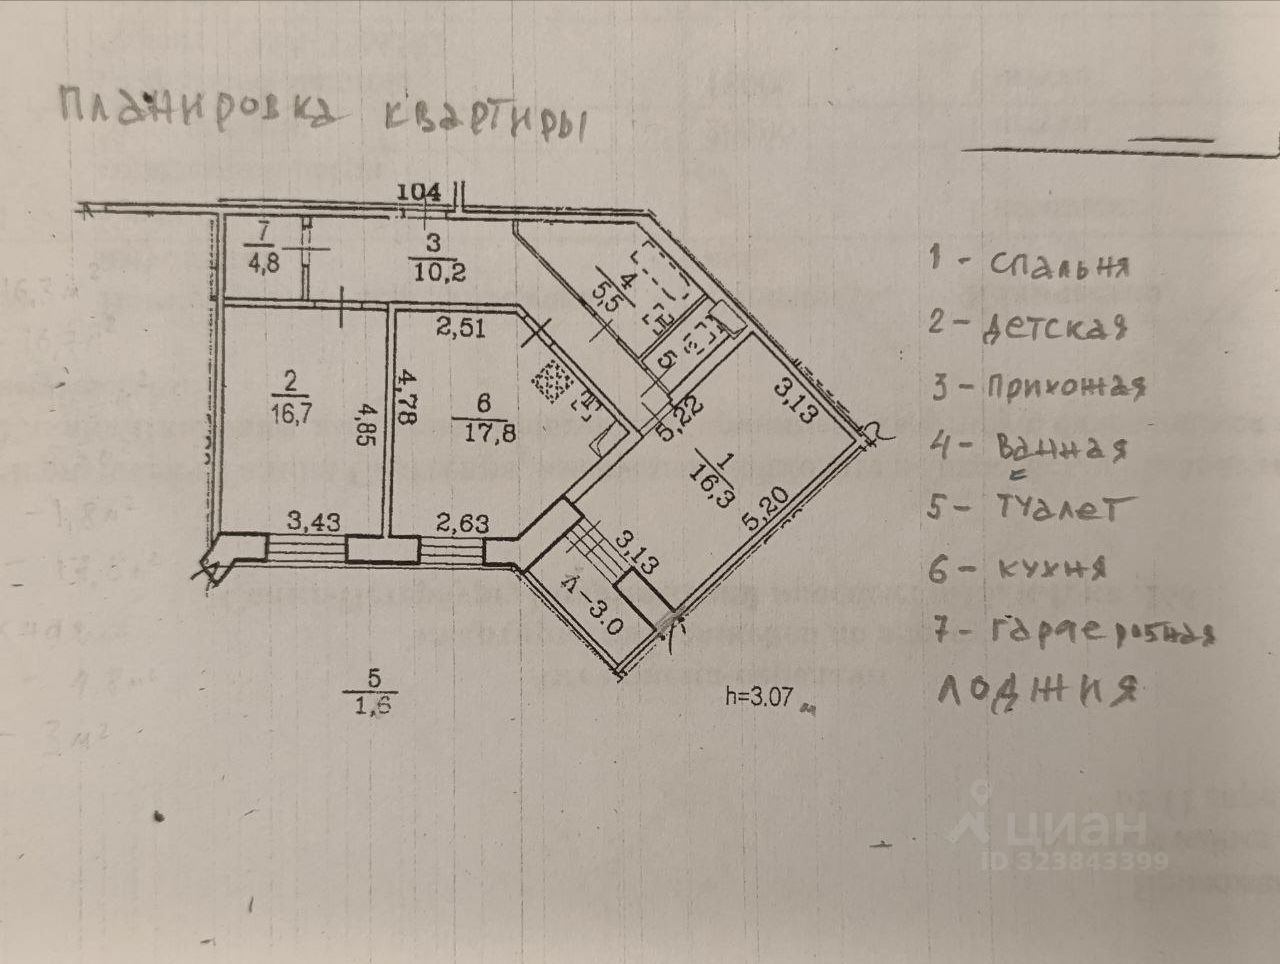 Планировка квартиры
104
7
4,8
3
10,2
4
5,5
5
2,51
2
16,7
4,85
4,78
6
17,8
5,22
3,13
1
16,3
5,20
3,43
2,63
3,13
Л-3.0
5
1,6
h=3.07 м
1 - спальня
2 - детская
3 - прихожая
4 - Ванная
5 - туалет
6 - кухня
7 - гардеробная
лоджия
16,3 м²
16,7 м²
- 1,8 м²
- 4,8 м²
- 3 м²
циан
ID 323843399